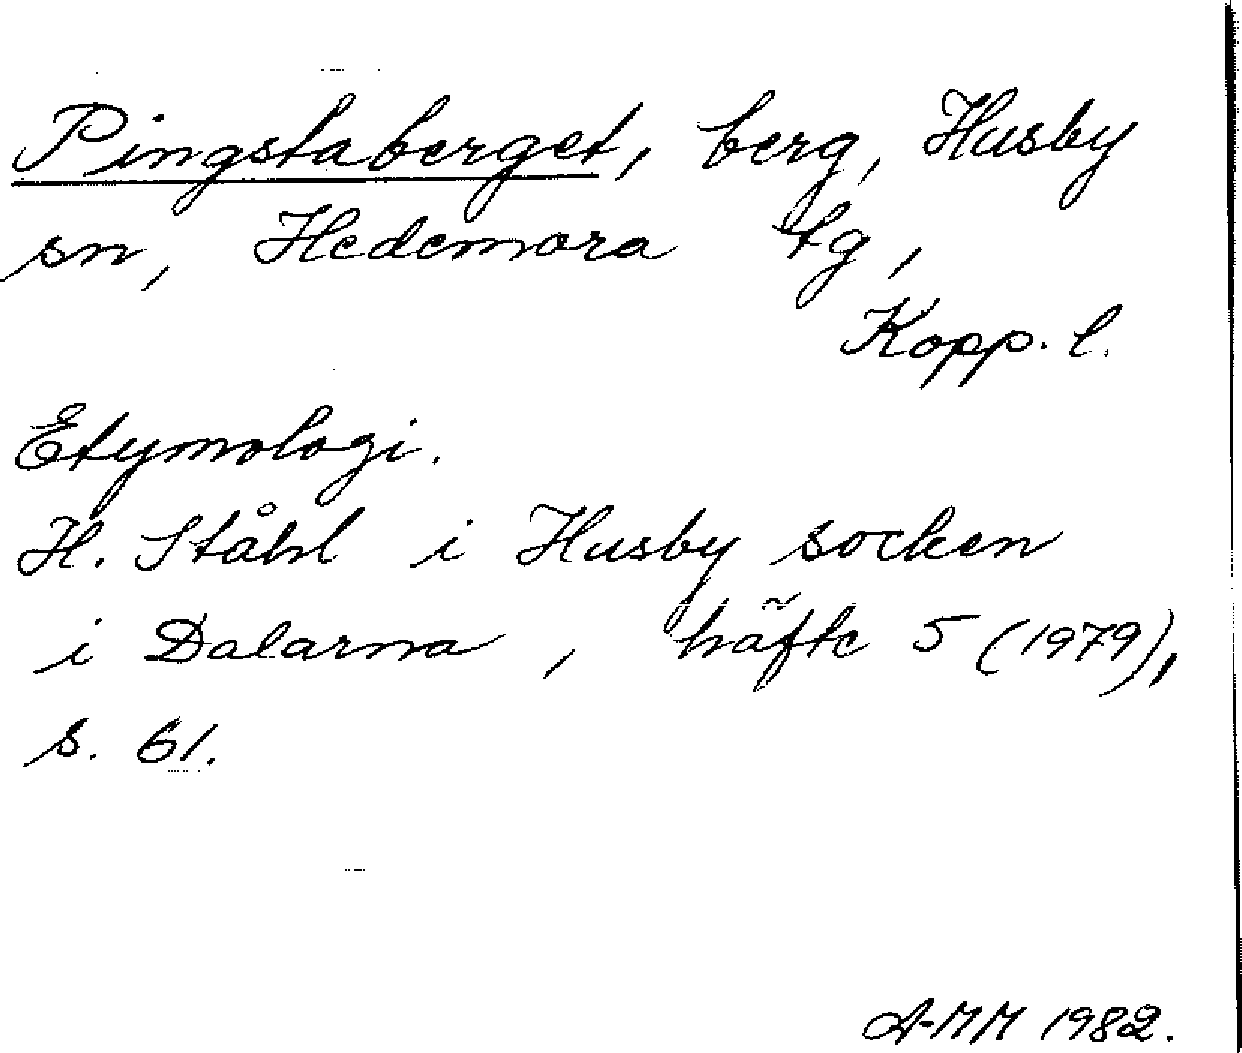 Pingstaberget, berg, Husby
sn, Hedemora tg,
Kopp. l.
Etymologi.
H. Ståhl i Husby socken
i Dalarna, häfte 5 (1979),
s. 61.
A-MM 1982.